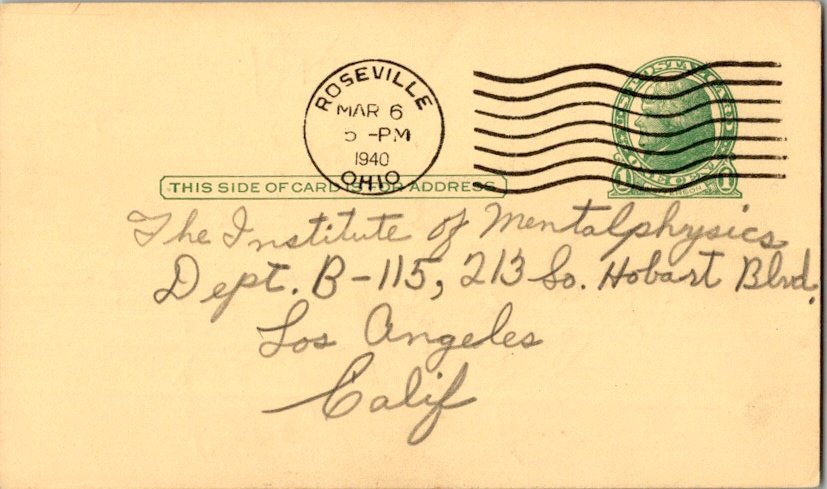 ROSEVILLE
MAR 6
5 -PM
1940
OHIO
THIS SIDE OF CARD IS FOR ADDRESS
1 1
The Institute of Mentalphysics
Dept. B-115, 213 So. Hobart Blvd.
Los Angeles
Calif